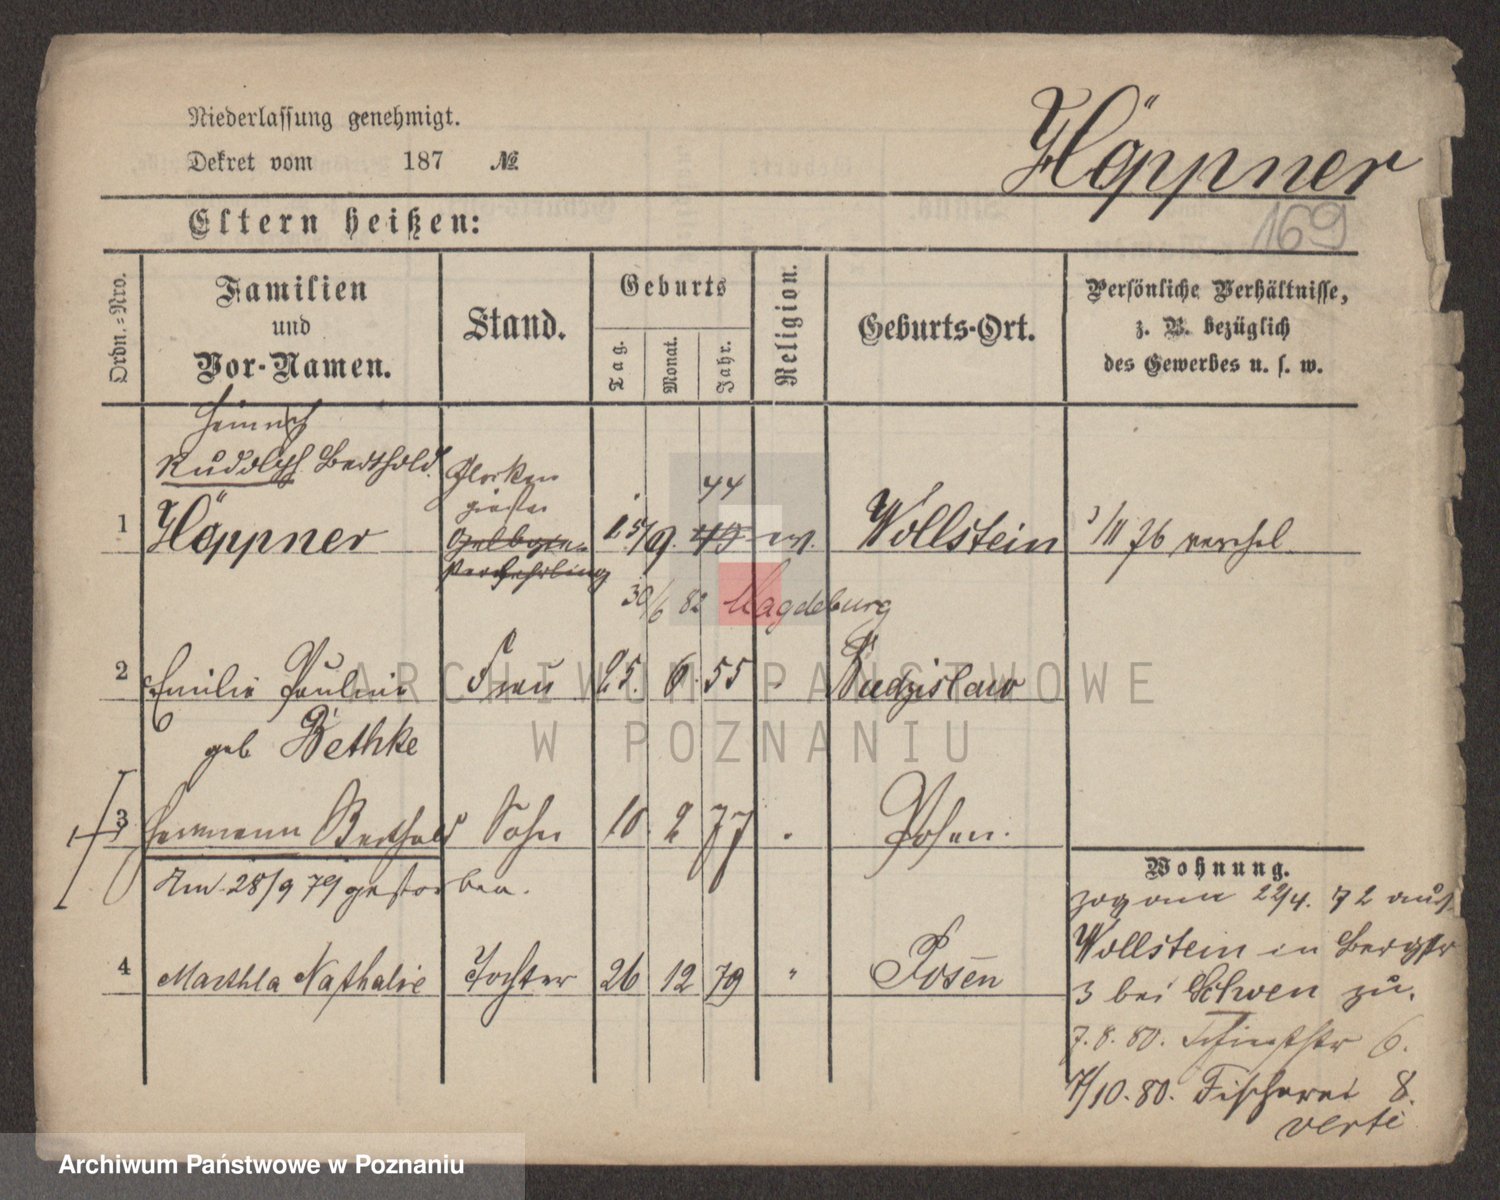 Niederlassung genehmigt.
Dekret vom 187 №
Höppner
169
Eltern heißen:
Ordn.-Nro.
Familien
und
Vor-Namen.
Stand.
Geburts
Tag.
Monat.
Jahr.
Religion.
Geburts-Ort.
Persönliche Verhältnisse,
z. B. bezüglich
des Gewerbes u. s. w.
Heinrich
Rudolph Berthold
Glocken
gießer
44
1 Höppner 15/ 9. 49 ev. Wollstein 3/11 76 verehel.
30/6 82 Magdeburg
2 Emilie Pauline Frau 25. 6. 55 Budzislaw
geb Bethke
3 Hermann Berthold Sohn 10. 2 77 Posen.
Am 28/9 79 gestorben.
4 Martha Nathalie Tochter 26 12 79 " Posen
Wohnung.
zog am 22/4. 72 aus
Wollstein in Bergstr
3 bei Schwen zu.
7. 8. 80. 6.
7/10. 80. Fischerei 8.
verte
ARCHIWUM PAŃSTWOWE
W POZNANIU
Archiwum Państwowe w Poznaniu